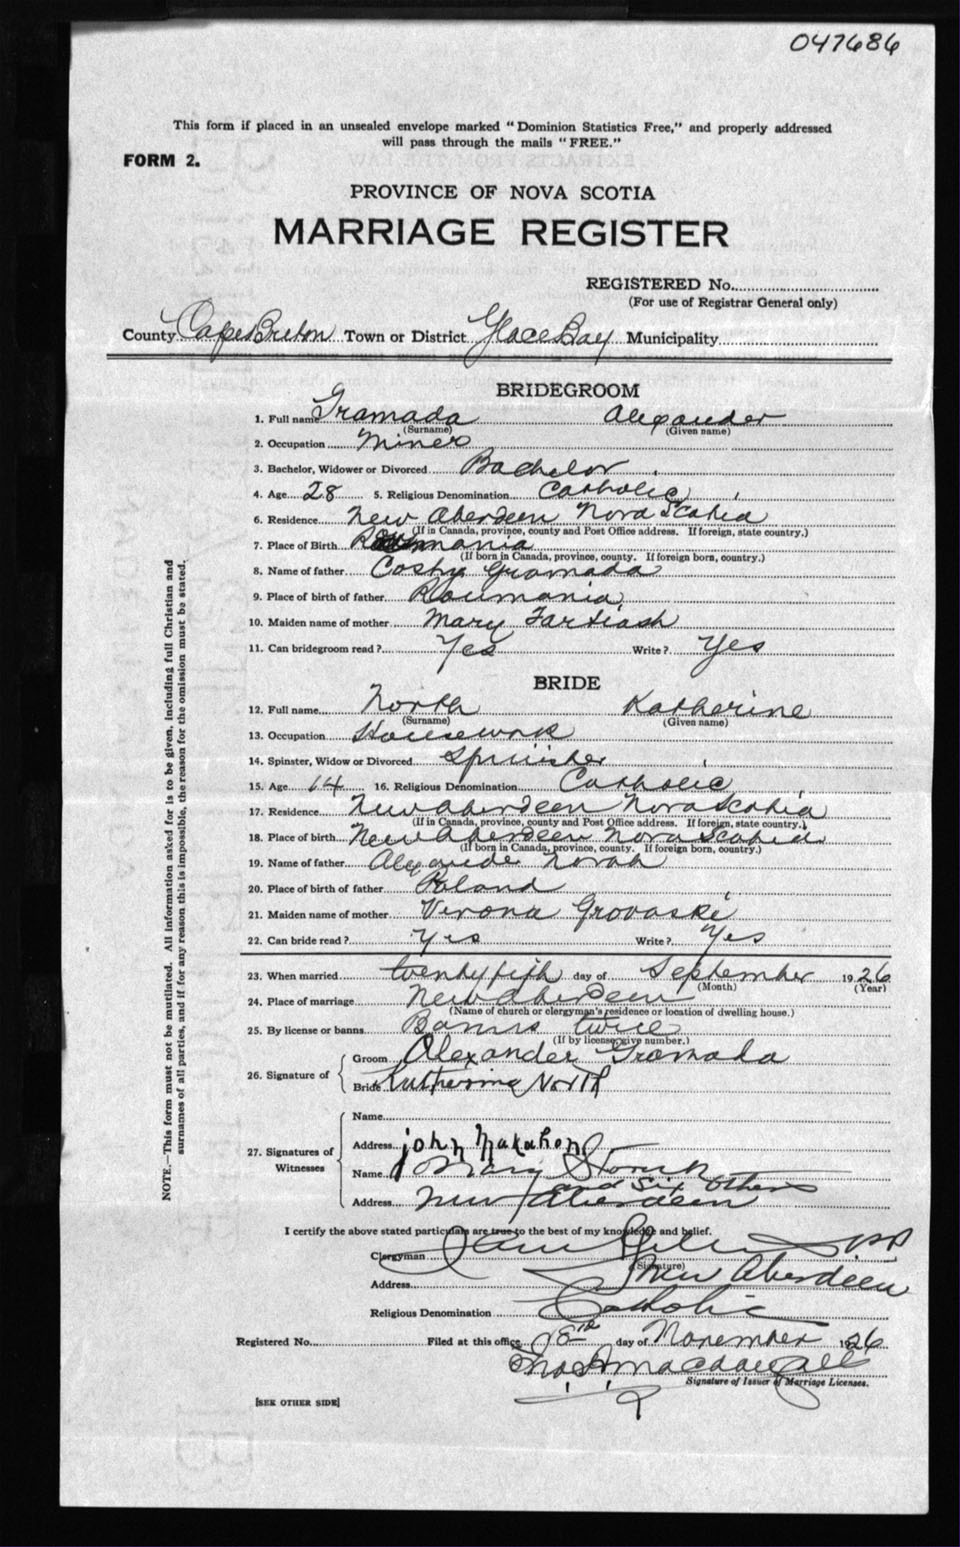 047686
This form if placed in an unsealed envelope marked "Dominion Statistics Free," and properly addressed
will pass through the mails "FREE."
FORM 2.
PROVINCE OF NOVA SCOTIA
MARRIAGE REGISTER
REGISTERED No.
(For use of Registrar General only)
County Cape Breton Town or District Glace Bay Municipality
BRIDEGROOM
1. Full name Gramada Alexander
(Surname) (Given name)
2. Occupation Miner
3. Bachelor, Widower or Divorced Bachelor
4. Age 28 5. Religious Denomination Catholic
6. Residence New Aberdeen Nova Scotia
(If in Canada, province, county and Post Office address. If foreign, state country.)
7. Place of Birth Roumania
(If born in Canada, province, county. If foreign born, country.)
8. Name of father Gramada
9. Place of birth of father Roumania
10. Maiden name of mother Mary
11. Can bridegroom read? Yes Write? Yes
BRIDE
12. Full name North Katherine
(Surname) (Given name)
13. Occupation Housework
14. Spinster, Widow or Divorced Spinster
15. Age 14 16. Religious Denomination Catholic
17. Residence New Aberdeen Nova Scotia
(If in Canada, province, county and Post Office address. If foreign, state country.)
18. Place of birth New Aberdeen Nova Scotia
(If born in Canada, province, county. If foreign born, country.)
19. Name of father Alexander North
20. Place of birth of father Poland
21. Maiden name of mother Verona Grovaski
22. Can bride read? Yes Write? Yes
23. When married twenty fifth day of September 1926
(Month) (Year)
24. Place of marriage New Aberdeen
(Name of church or clergyman's residence or location of dwelling house.)
25. By license or banns Banns twice
(If by license, give number.)
26. Signature of
Groom Alexander Gramada
Bride Katherine North
27. Signatures of
Witnesses
Name
Address John Makahon
Name Mary
and six others
Address New Aberdeen
I certify the above stated particulars are true to the best of my knowledge and belief.
Clergyman P.P.
(Signature)
Address New Aberdeen
Religious Denomination Catholic
Registered No. Filed at this office 18th day of November 1926
MacDougall
Signature of Issuer of Marriage Licenses.
[SEE OTHER SIDE]
NOTE.—This form must not be mutilated. All information asked for is to be given, including full Christian and
surnames of all parties, and if for any reason this is impossible, the reason for the omission must be stated.